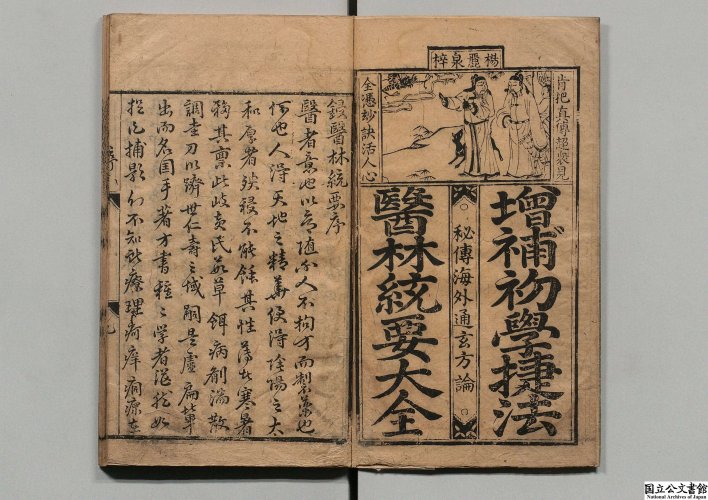 楊麗泉梓
肯把真傳超衆見
全憑妙訣活人心
增補初學捷法
秘傳海外通玄方論
醫林統要大全
鋟醫林統要序
醫者意也以意隨人不拘方而製藥也
何也人得天地之精華使得陰陽之太
和厚者殘寝不能餘其性薄者寒暑
務其禀此岐黄氏茹草餌病創濡散
調圭刀以躋世仁壽之域嗣是盧扁輩
出而名国手者方書種之學者泥於如
捉風捕影而不知所療理疴痒痌瘝
国立公文書館
National Archives of Japan